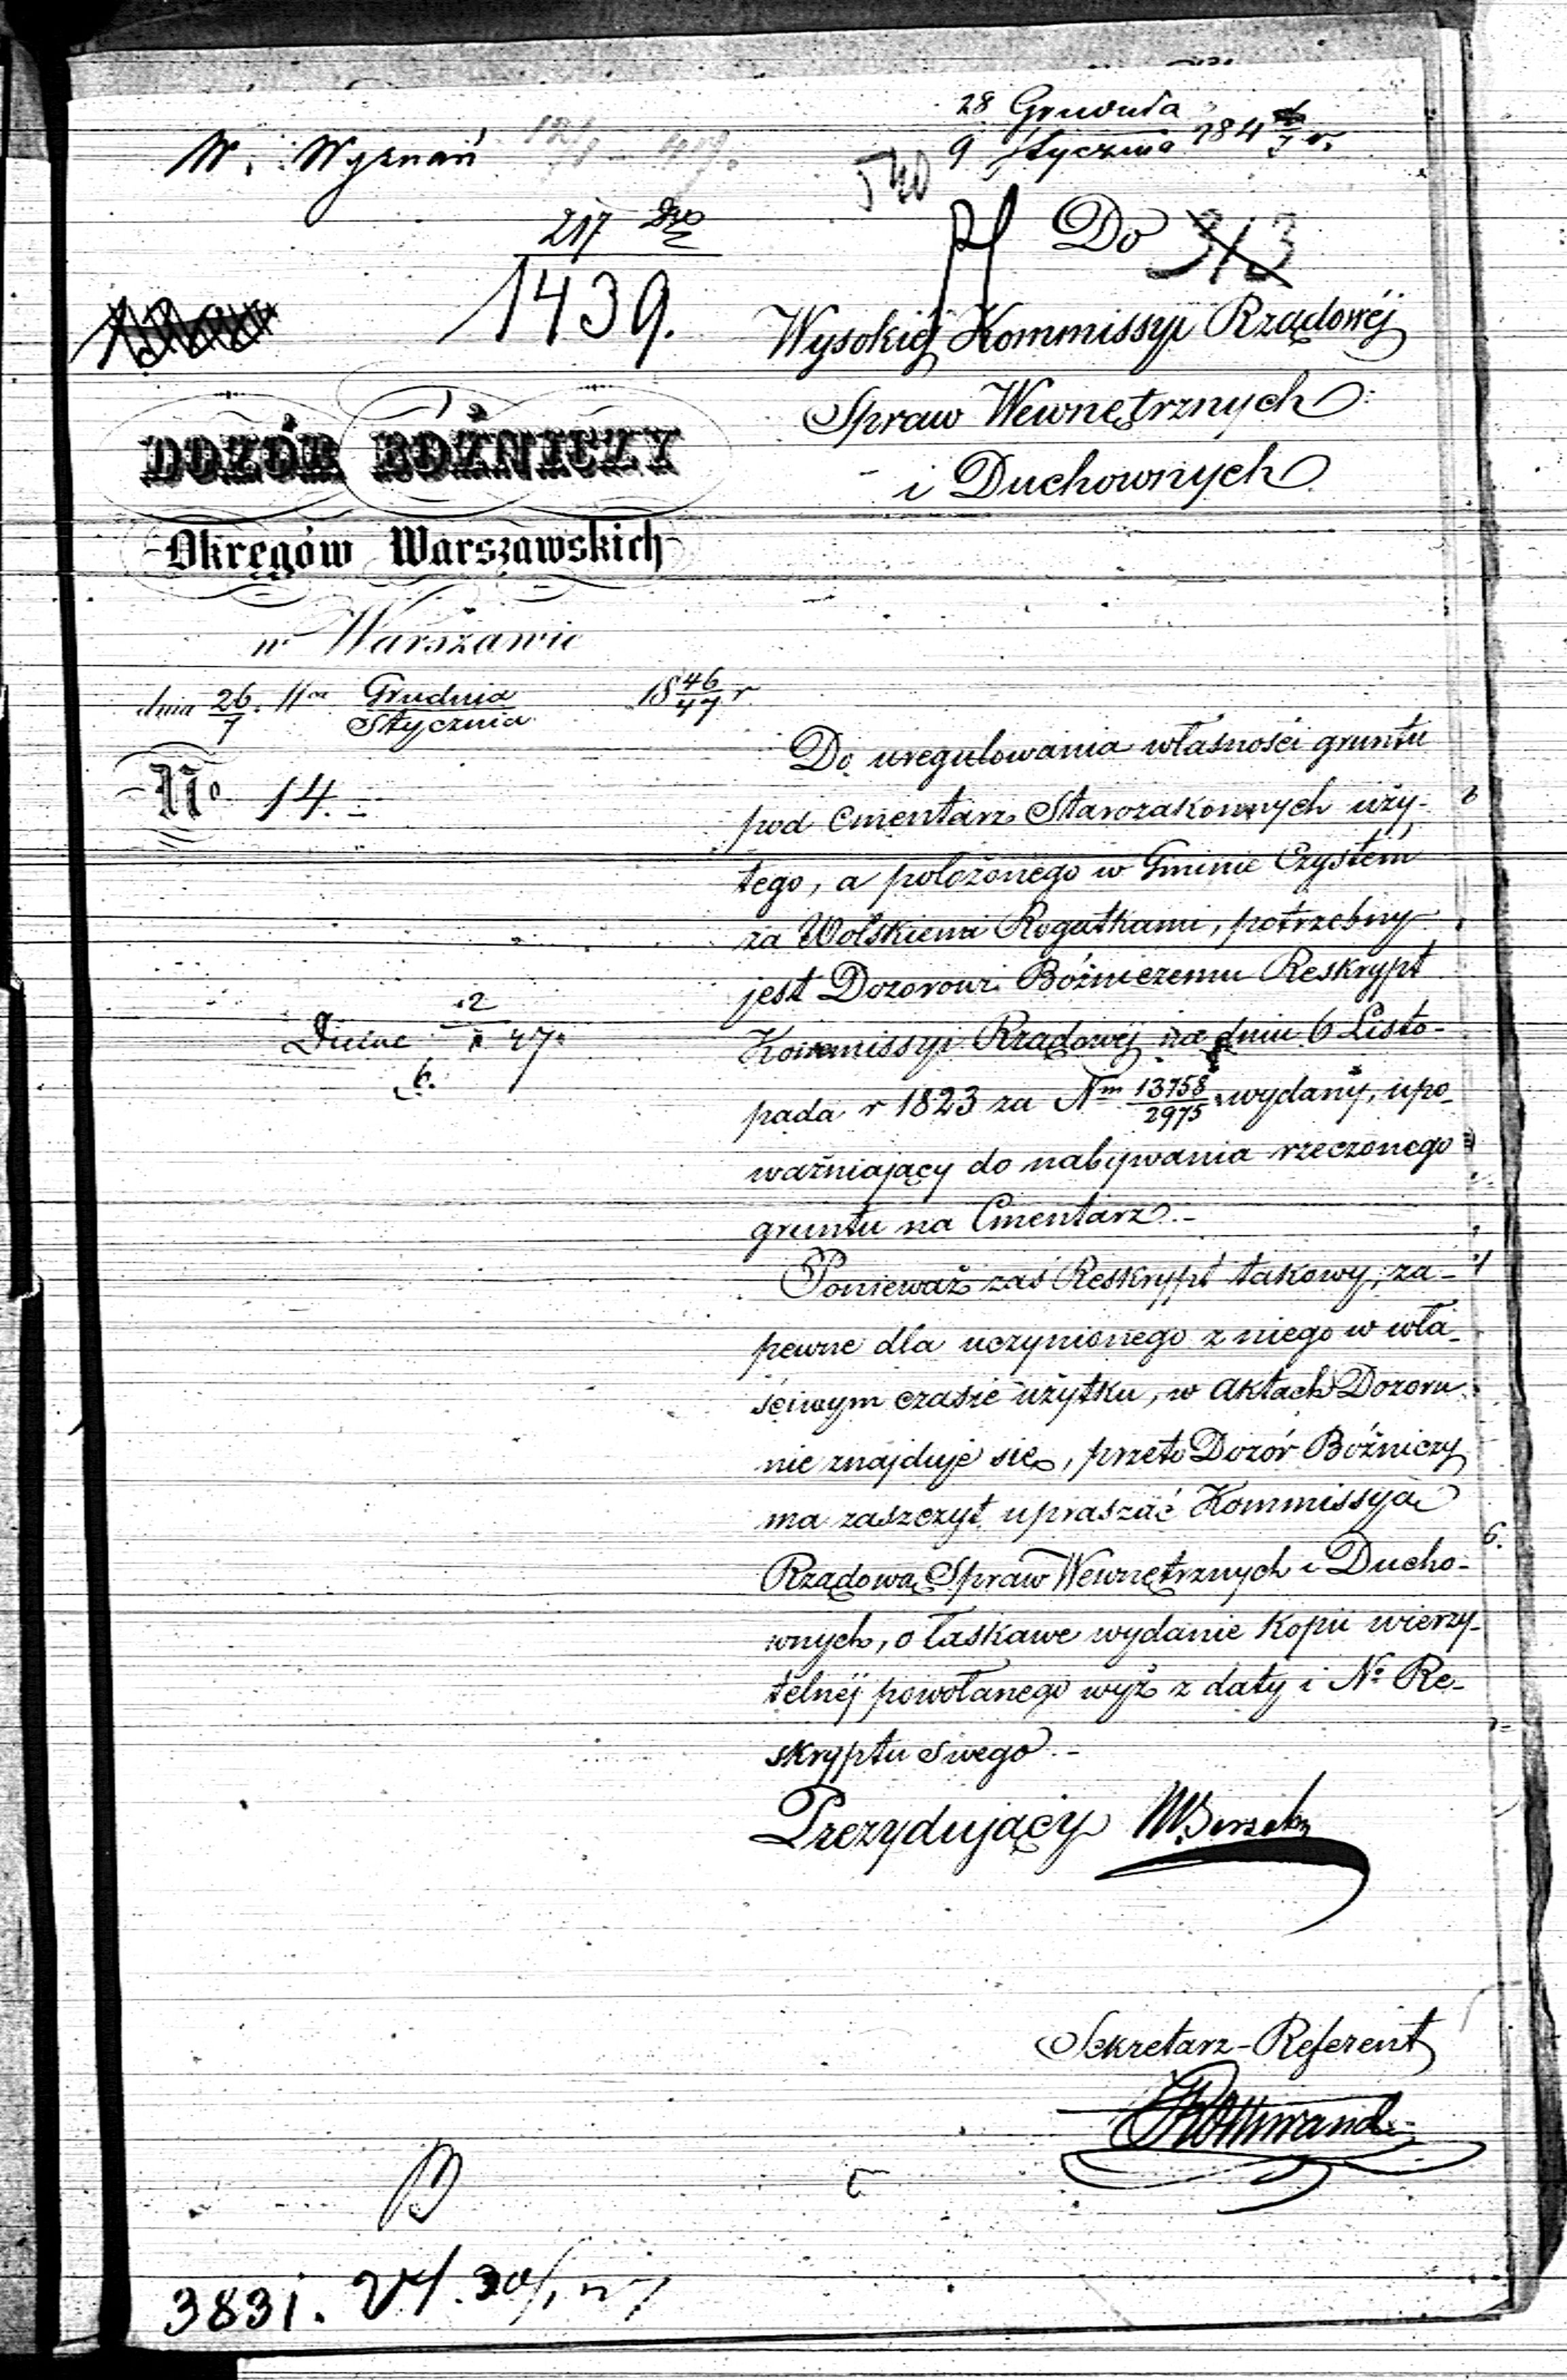 W. Wyznań
28 Grudnia
9 Stycznia 184 6/7 r.
540
217
1439.
Do 313
Wysokiéj Kommissyi Rządowéj
Spraw Wewnętrznych
i Duchownych
DOZÓR BÓŻNICZY
Okręgów Warszawskich
w Warszawie
dnia 26/7 Grudnia/Stycznia 18 46/47 r
No 14.
Do uregulowania własności gruntu
pod Cmentarz Starozakonnych uży-
tego, a położonego w Gminie Czystem
za Wolskiemi Rogatkami, potrzebny
jest Dozorowi Bóżniczemu Reskrypt
Kommissyi Rządowéj na dniu 6 Listo-
pada r 1823 za Nm 13758/2975 wydany, upo-
ważniający do nabywania rzeczonego
gruntu na Cmentarz.-
Ponieważ zaś Reskrypt takowy, za-
pewne dla uczynionego z niego w wła-
ściwym czasie użytku, w aktach Dozoru
nie znajduje się, przeto Dozór Bóżniczy
ma zaszczyt upraszać Kommissyą
Rządową Spraw Wewnętrznych i Ducho-
wnych, o łaskawe wydanie Kopii wierzy-
telnéj powołanego wyż z daty i No Re-
skryptu swego.-
Prezydujący
Sekretarz-Referent
Rottwand
3831.